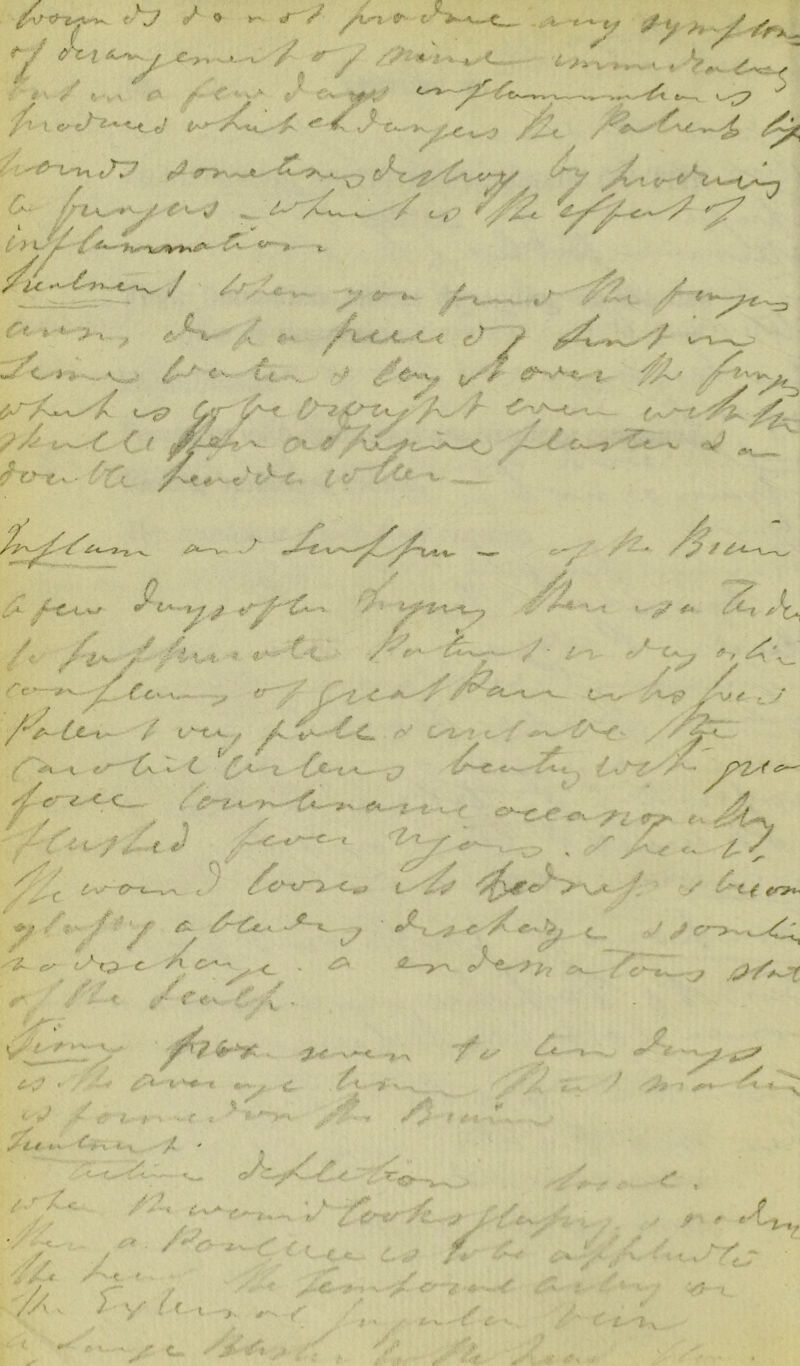 wounds do not produce any symptom
of derangement of mind immediately
but in a few days inflammation is
produced which endangers the Patients life
wounds sometimes destroy by producing
a fungus - which is the effect of
inflammation
Treatment When you find the fungus
arising dip a piece of Lint in
Lime Water & lay it over the fungus
which is to be brought even with the
skull then adhesive plaster & a
double headed roller —
Inflam and Suppu - of the Brain
a few days after Injury there is a Tende
to suppurate Patient in day or two
complains of great Pain in his head
Patient very pale & irritable the
Carotid Arteries beating with grea
force Countenance occasionally
flushed fever Rigors. & heat,
The wound looses its Redness & becom
glassy a bloody discharge & someti
no discharge. a oedematous stat
of the Scalp.
Time from seven to ten days
is the average time that matter
is formed on the Brain
Treatment.
active depletion local.
when the wound looks glassy & no dis
then a Poultice is to be applied to
the head the Temporal artery or
the External jugular vein
a Large Blister to the head